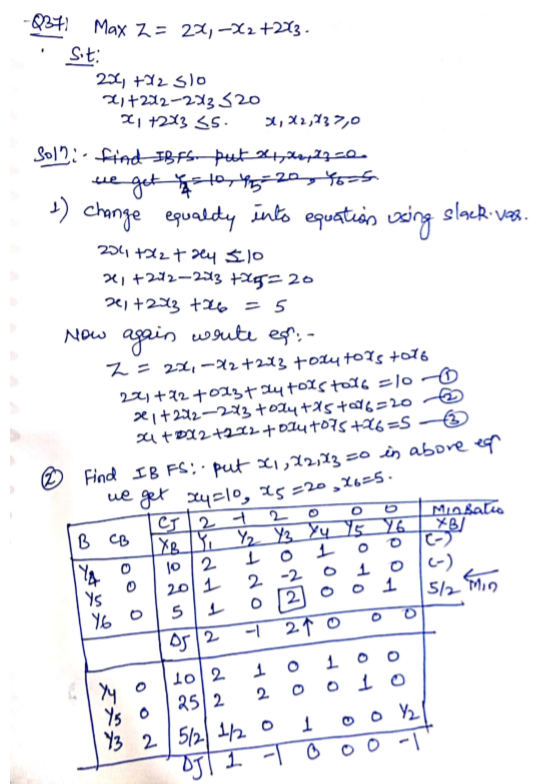 -Q37! Max Z = 2x₁ -x₂+2x₃.
S.t:
2x₁ +x₂ ≤10
x₁+2x₂-2x₃ ≤20
x₁ +2x₃ ≤5. x₁, x₂, x₃ ≥,0
Sol?:- find IBFS. put x₁, x₂, x₃=0.
we get Y₄=10, Y₅=20, Y₆=5
1) change equaldy into equation using slack.var.
2x₁ +x₂ + x₄ ≤10
x₁ +2x₂-2x₃ +x₅= 20
x₁+2x₃ +x₆ = 5
Now again write eqⁿ:-
Z = 2x₁-x₂+2x₃+0x₄+0x₅+0x₆
2x₁+x₂+0x₃+x₄+0x₅+0x₆ =10 -①
x₁+2x₂-2x₃+0x₄+x₅+0x₆=20 -②
x₁+0x₂+2x₂+0x₄+0x5+x₆=5 -③
② Find IBFS:- put x₁, x₂, x₃ =0 in above eqⁿ
we get x₄=10, x₅=20, x₆=5.
CJ 2 -1 2 0 0 0 Min Ratio
B CB XB Y₁ Y₂ Y₃ Y₄ Y₅ Y₆ XB/
Y₄ 0 10 2 1 0 1 0 0 (-)
Y₅ 0 20 1 2 -2 0 1 0 (-)
Y₆ 0 5 1 0 2 0 0 1 5/2 ← Min
ΔJ 2 -1 2↑ 0 0 0
Y₄ 0 10 2 1 0 1 0 0
Y₅ 0 25 2 2 0 0 1 0
Y₃ 2 5/2 1/2 0 1 0 0 Y₂
ΔJ 1 -1 0 0 0 -1